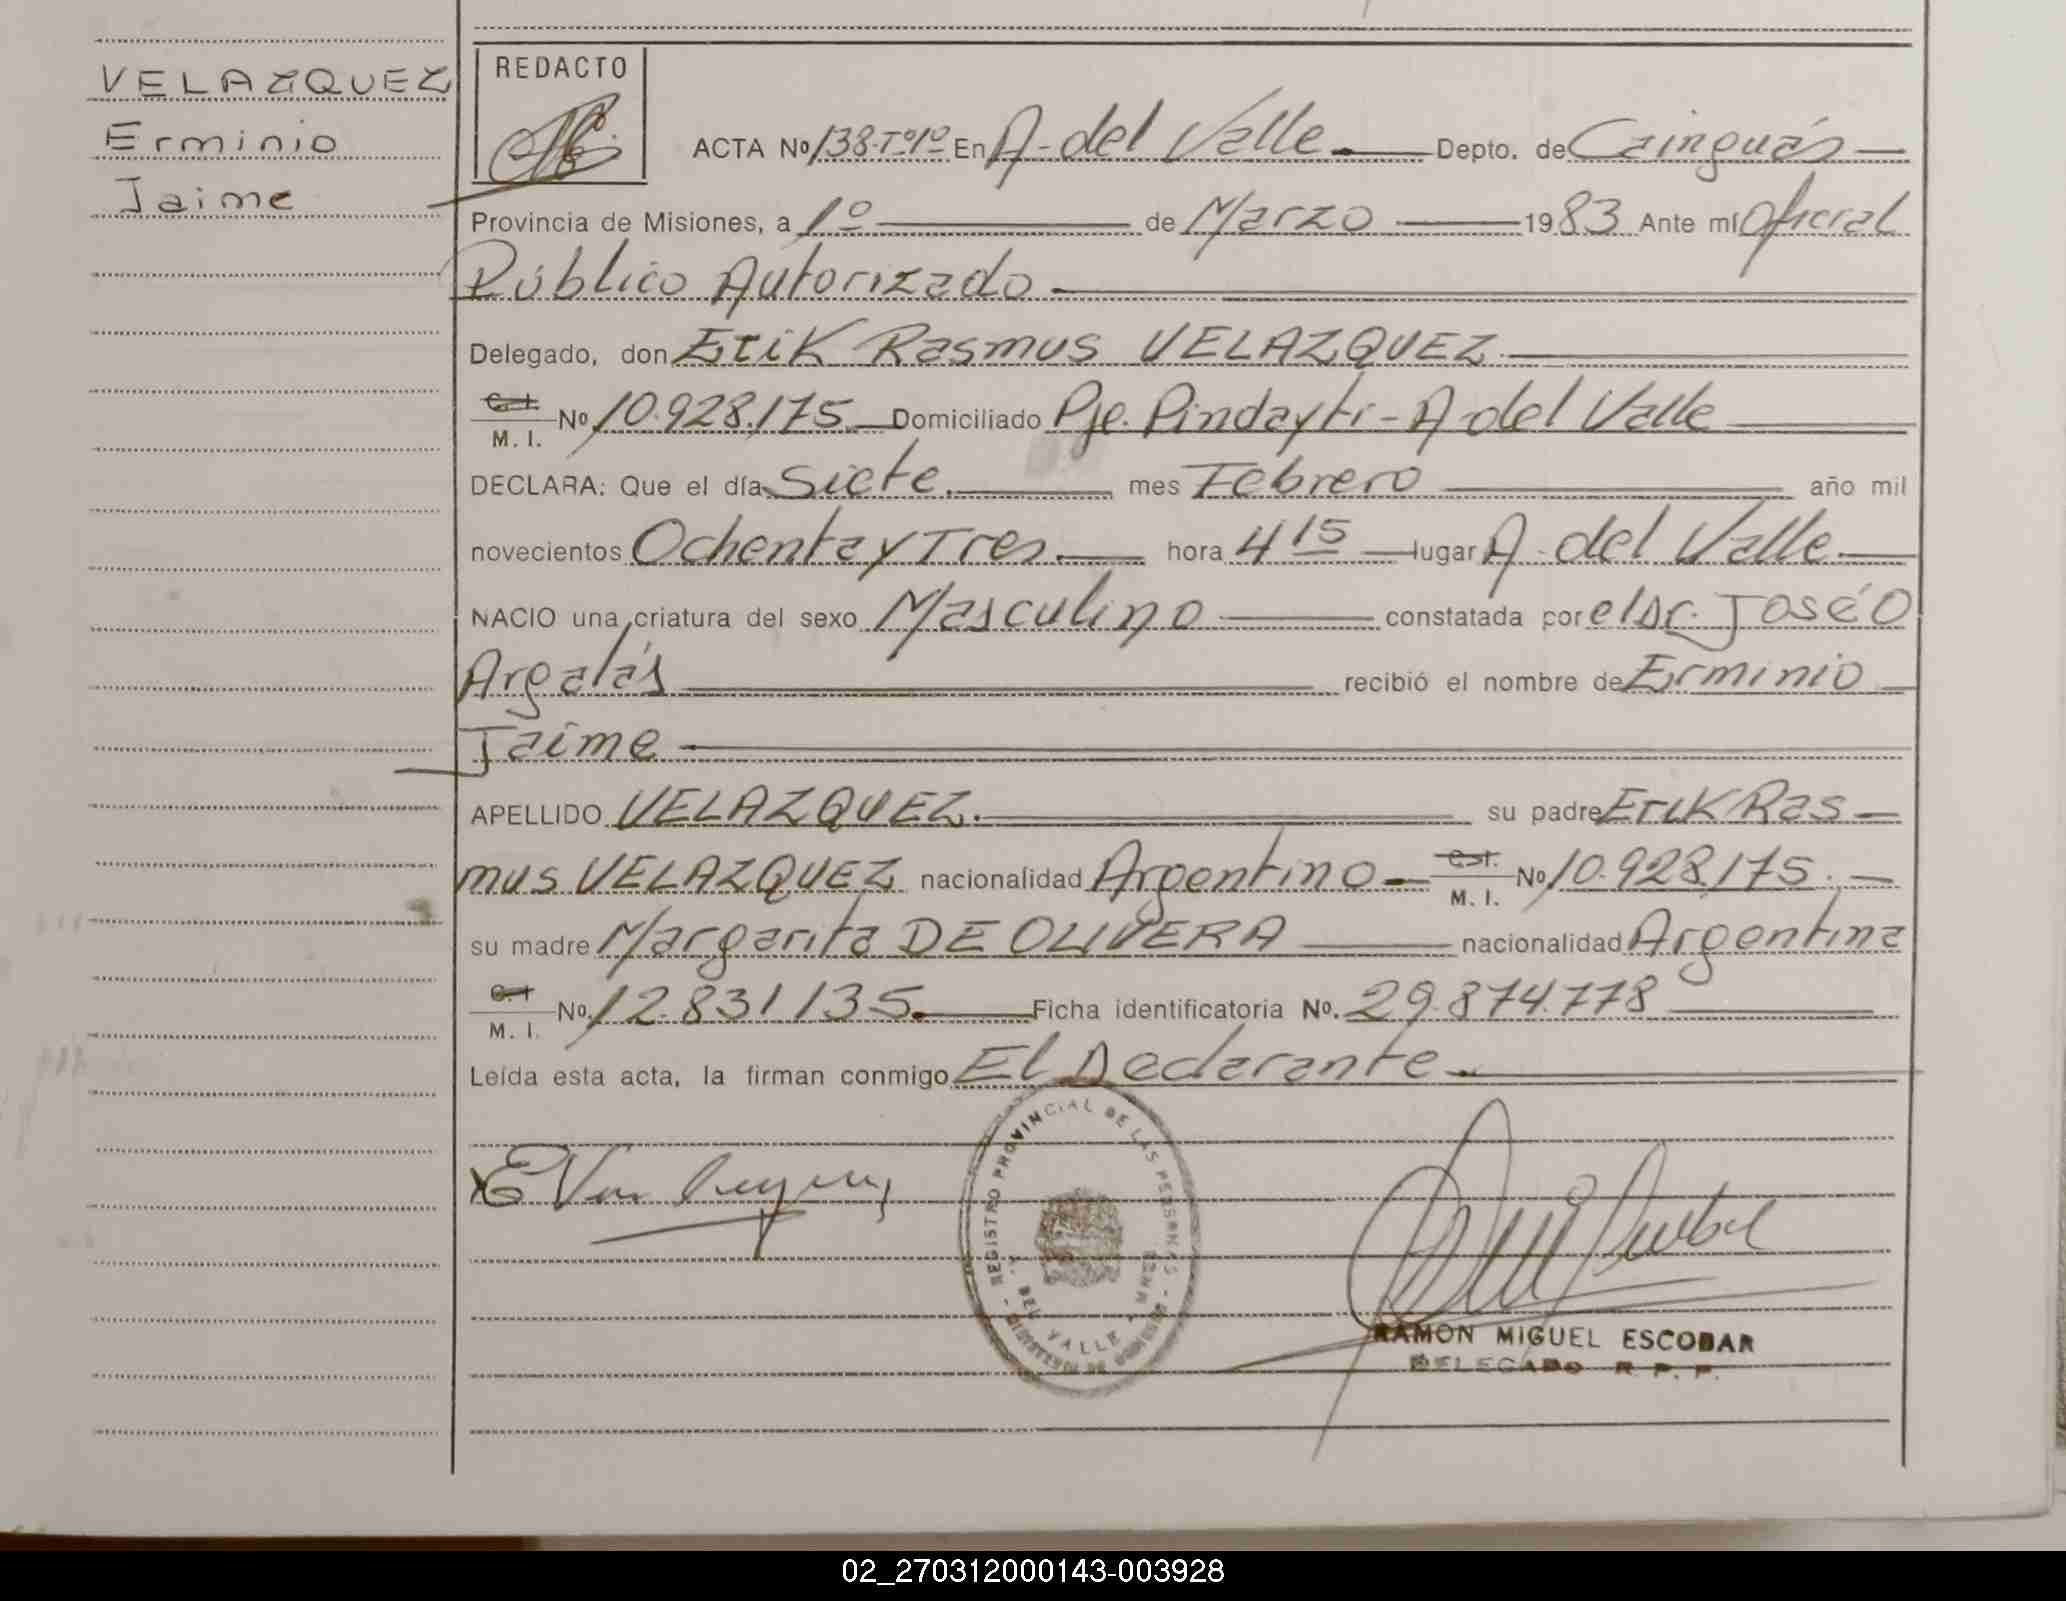 VELAZQUEZ
Erminio
Jaime
REDACTO
ACTA Nº 138-Tº1º En A. del Valle Depto. de Cainguás
Provincia de Misiones, a 1º de Marzo 1983 Ante mí Oficial
Público Autorizado
Delegado, don Erik Rasmus VELAZQUEZ
C.I. M. I. Nº 10.928.175 Domiciliado Pje. Pindayti - A del Valle
DECLARA: Que el día Siete mes Febrero año mil
novecientos Ochenta y Tres hora 4 15 lugar A. del Valle
NACIO una criatura del sexo Masculino constatada por el Dr. José O
Argalás recibió el nombre de Erminio
Jaime
APELLIDO VELAZQUEZ. su padre Erik Ras
mus VELAZQUEZ nacionalidad Argentino M. I. Nº 10.928.175.
su madre Margarita DE OLIVERA nacionalidad Argentina
C.I. M. I. Nº 12.831135 Ficha identificatoria Nº. 29.874.778
Leída esta acta, la firman conmigo El Declarante
REGISTRO PROVINCIAL DE LAS PERSONAS
A. DEL VALLE - MNES
RAMON MIGUEL ESCOBAR
DELEGADO R. P. P.
02_270312000143-003928